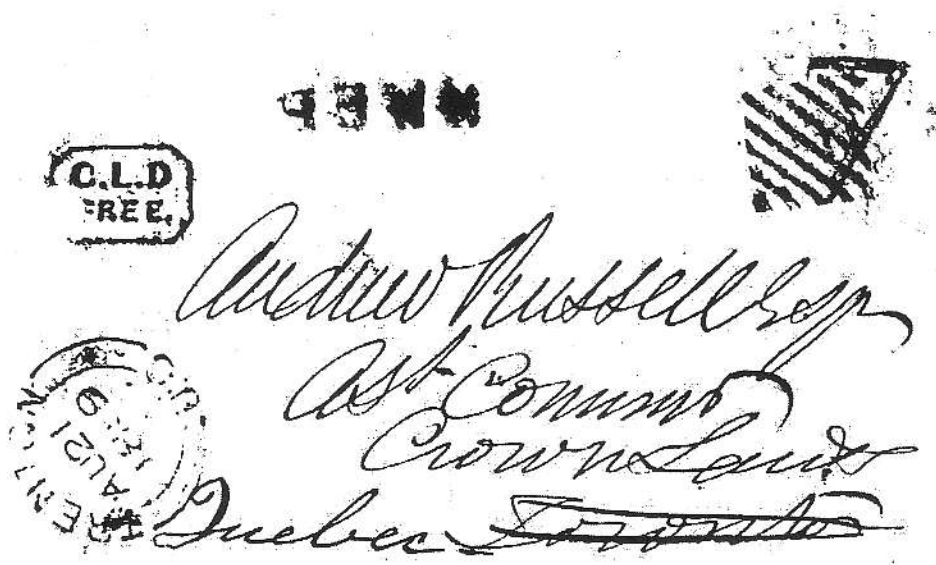 C.L.D
FREE.
Andrew Russell Esqr
Asst Commr
Crown Lands
Quebec Toronto
TRENTON C.W.
AU 21